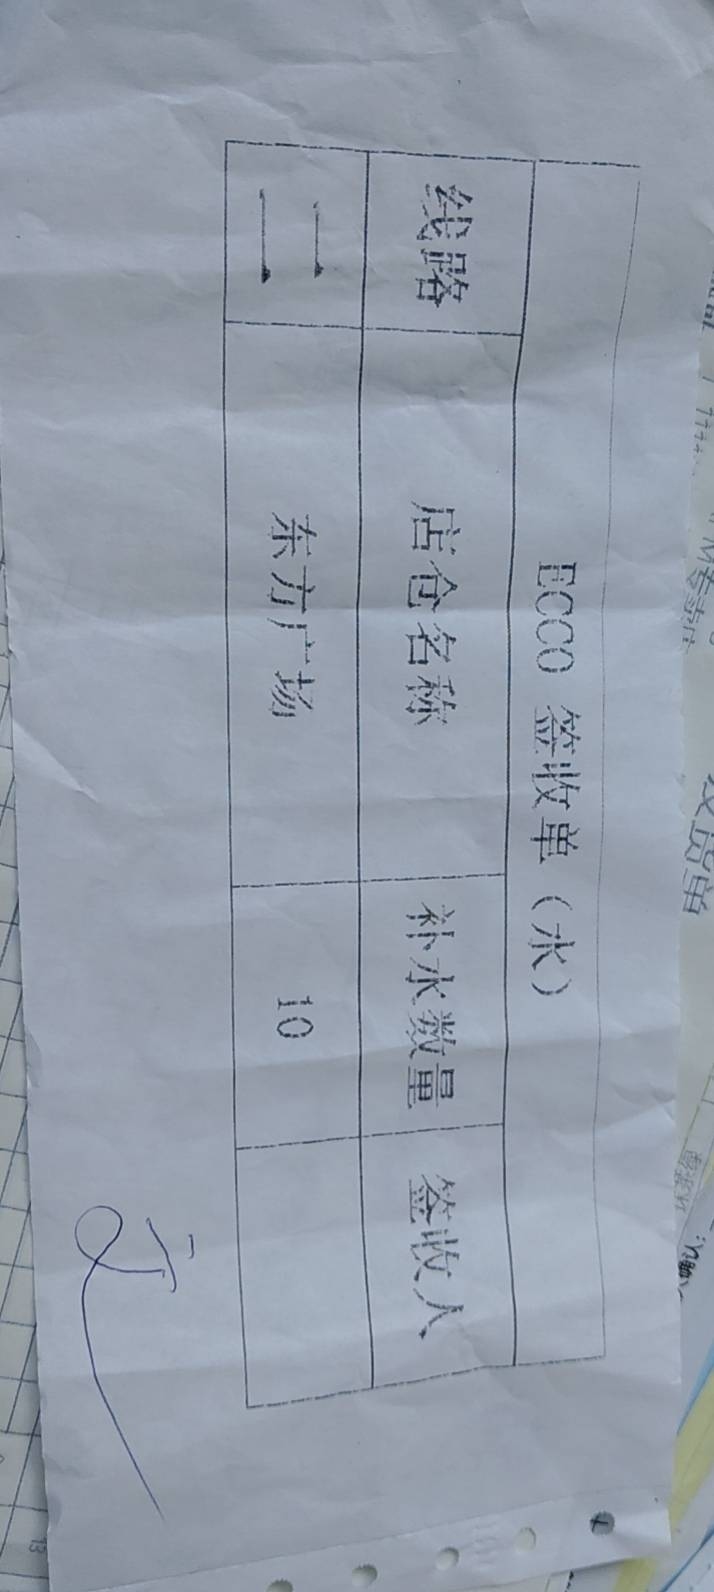 ECCO 签收单（水）
线路 店仓名称 补水数量 签收人
二 东方广场 10